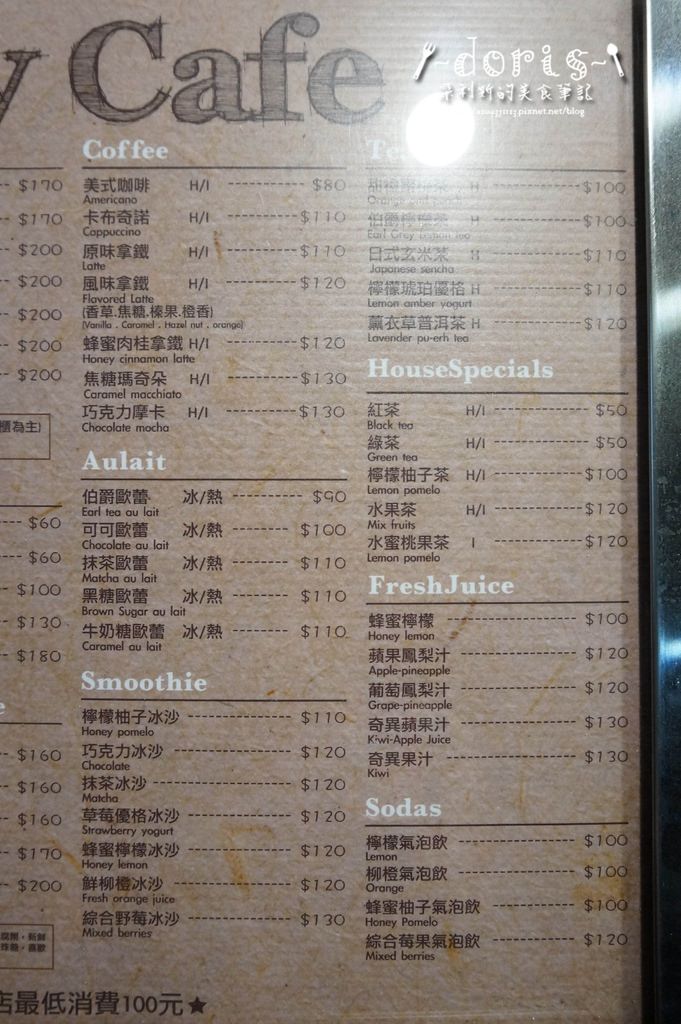 y Cafe
~doris~
的美食筆記
pixnet.net/blog
$170
$170
$200
$200
$200
$200
$200
櫃為主)
$60
$60
$100
$130
$180
e
$160
$160
$160
$170
$200
Coffee
美式咖啡 H/I $80
Americano
卡布奇諾 H/I $110
Cappuccino
原味拿鐵 H/I $110
Latte
風味拿鐵 H/I $120
Flavored Latte
(香草.焦糖.榛果.橙香)
(Vanilla . Caramel . Hazel nut . orange)
蜂蜜肉桂拿鐵 H/I $120
Honey cinnamon latte
焦糖瑪奇朵 H/I $130
Caramel macchiato
巧克力摩卡 H/I $130
Chocolate mocha
Aulait
伯爵歐蕾 冰/熱 $90
Earl tea au lait
可可歐蕾 冰/熱 $100
Chocolate au lait
抹茶歐蕾 冰/熱 $110
Matcha au lait
黑糖歐蕾 冰/熱 $110
Brown Sugar au lait
牛奶糖歐蕾 冰/熱 $110
Caramel au lait
Smoothie
檸檬柚子冰沙 $110
Honey pomelo
巧克力冰沙 $120
Chocolate
抹茶冰沙 $120
Matcha
草莓優格冰沙 $120
Strawberry yogurt
蜂蜜檸檬冰沙 $120
Honey lemon
鮮柳橙冰沙 $120
Fresh orange juice
綜合野莓冰沙 $130
Mixed berries
H $100
伯爵檸檬茶 H $100
Earl Grey Lemon tea
日式玄米茶 H $110
Japanese sencha
檸檬琥珀優格 H $110
Lemon amber yogurt
薰衣草普洱茶 H $120
Lavender pu-erh tea
HouseSpecials
紅茶 H/I $50
Black tea
綠茶 H/I $50
Green tea
檸檬柚子茶 H/I $100
Lemon pomelo
水果茶 H/I $120
Mix fruits
水蜜桃果茶 I $120
Lemon pomelo
FreshJuice
蜂蜜檸檬 $100
Honey lemon
蘋果鳳梨汁 $120
Apple-pineapple
葡萄鳳梨汁 $120
Grape-pineapple
奇異蘋果汁 $130
Kiwi-Apple Juice
奇異果汁 $130
Kiwi
Sodas
檸檬氣泡飲 $100
Lemon
柳橙氣泡飲 $100
Orange
蜂蜜柚子氣泡飲 $100
Honey Pomelo
綜合莓果氣泡飲 $120
Mixed berries
店最低消費100元★